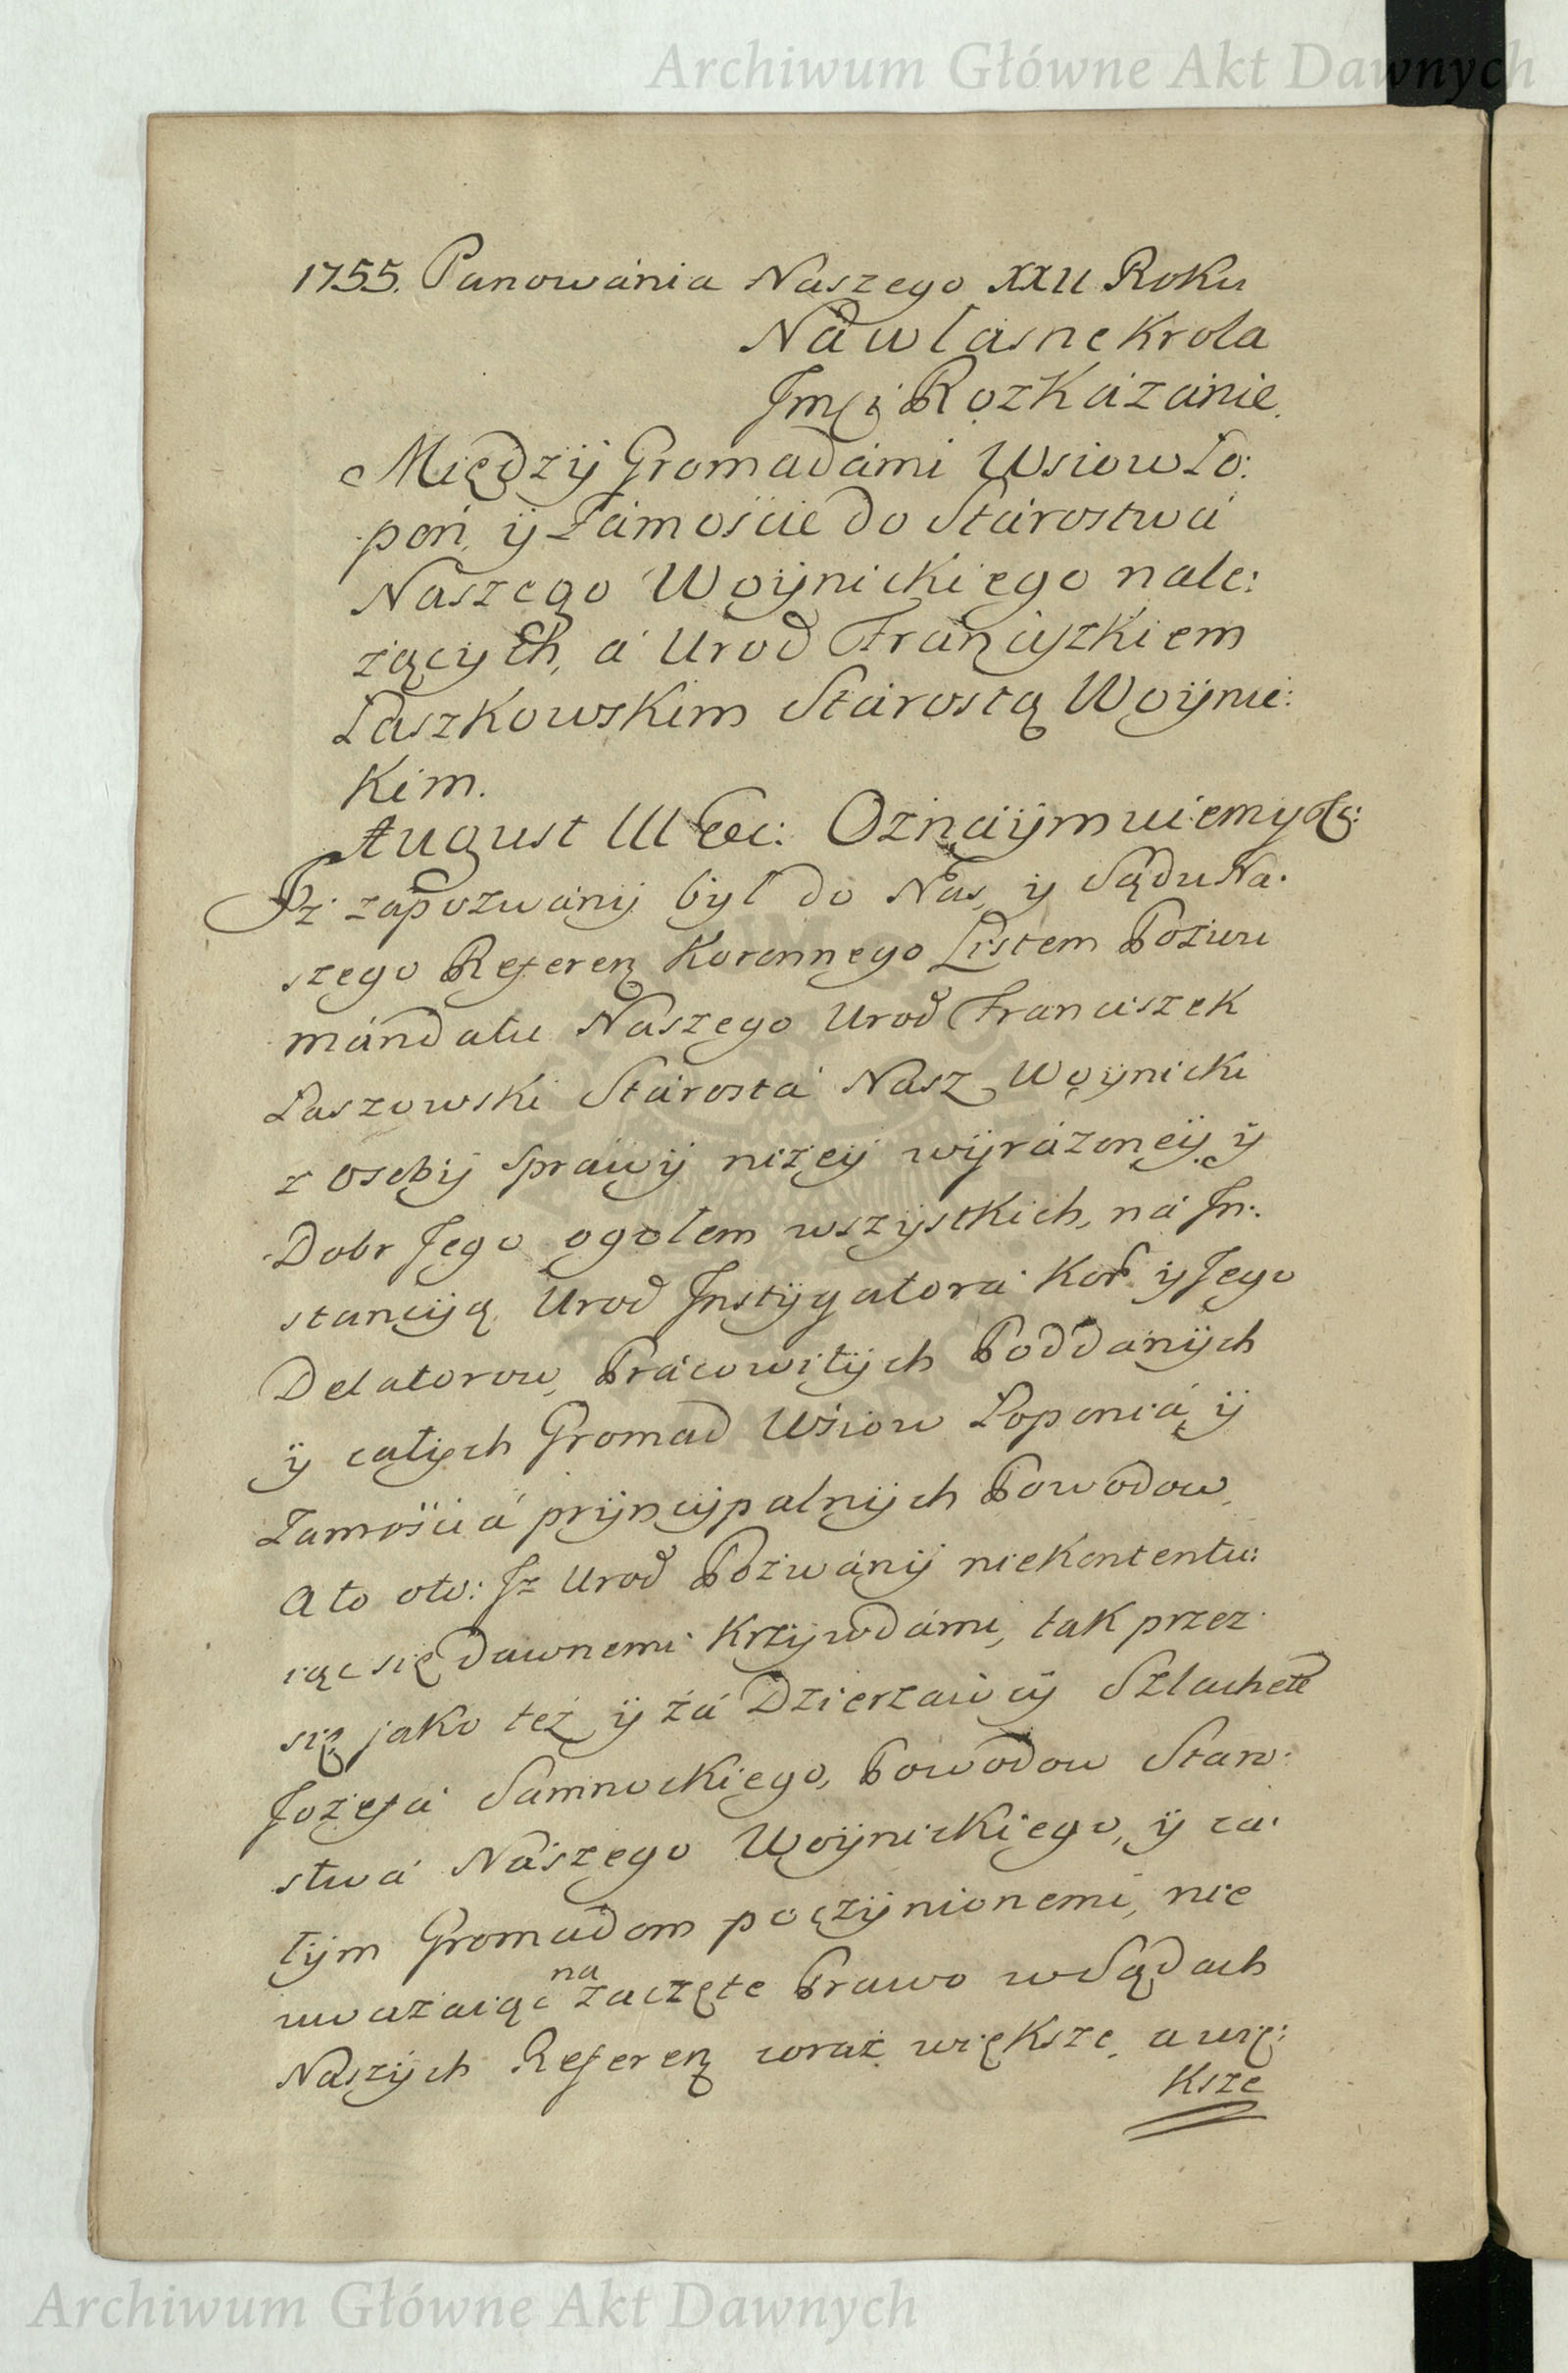 Archiwum Główne Akt Dawnych
1755. Panowánia Naszego XXII Roku
Ná własne Krola
Jmći Rozkázánie.
Między Gromadámi Wsiow Ło:
poń, ÿ Zámoście do Stárostwá
Naszego Woÿnickiego nale:
żących, á Urod Franciszkiem
Łaszkowskim Stárostą Woÿnic:
kim.
August III etc: Oznáÿmuiemy etc:
Jż zápozwány był do Nas, y Sądu Na:
szego Referen Koronnego Listem Pozwu
mándatu Naszego Urod Franciszek
Łaszowski Stárostá Nász Woÿnicki
z osoby spráwÿ niżeÿ wÿráżoneÿ, ÿ
Dobr Jego ogołem wszÿstkich, ná In:
stancÿą Urod Instÿgatorá Kor ÿ Jego
Delatorow, Prácowitÿch Poddánÿch
ÿ całÿch Gromad Wsiow Łoponiá, ÿ
Zamościá prÿncÿpalnÿch Powodow,
A to oto: Jż Urod Pozwánÿ niekontentu:
iąc się dawnemi Krzÿwdámi, tak przez
się, jako też ÿ zá Dzierżáwcÿ Szlachet
Jozefá Samnockiego, Powodow Staro:
stwá Nászego Woÿnickiego, ÿ ca:
łÿm Gromadom poczÿnionemi, nie
uważaiąc na zaczęte Prawo w Sądach
Naszÿch Referen coraz większe, a wię:
Ksze
Archiwum Główne Akt Dawnych